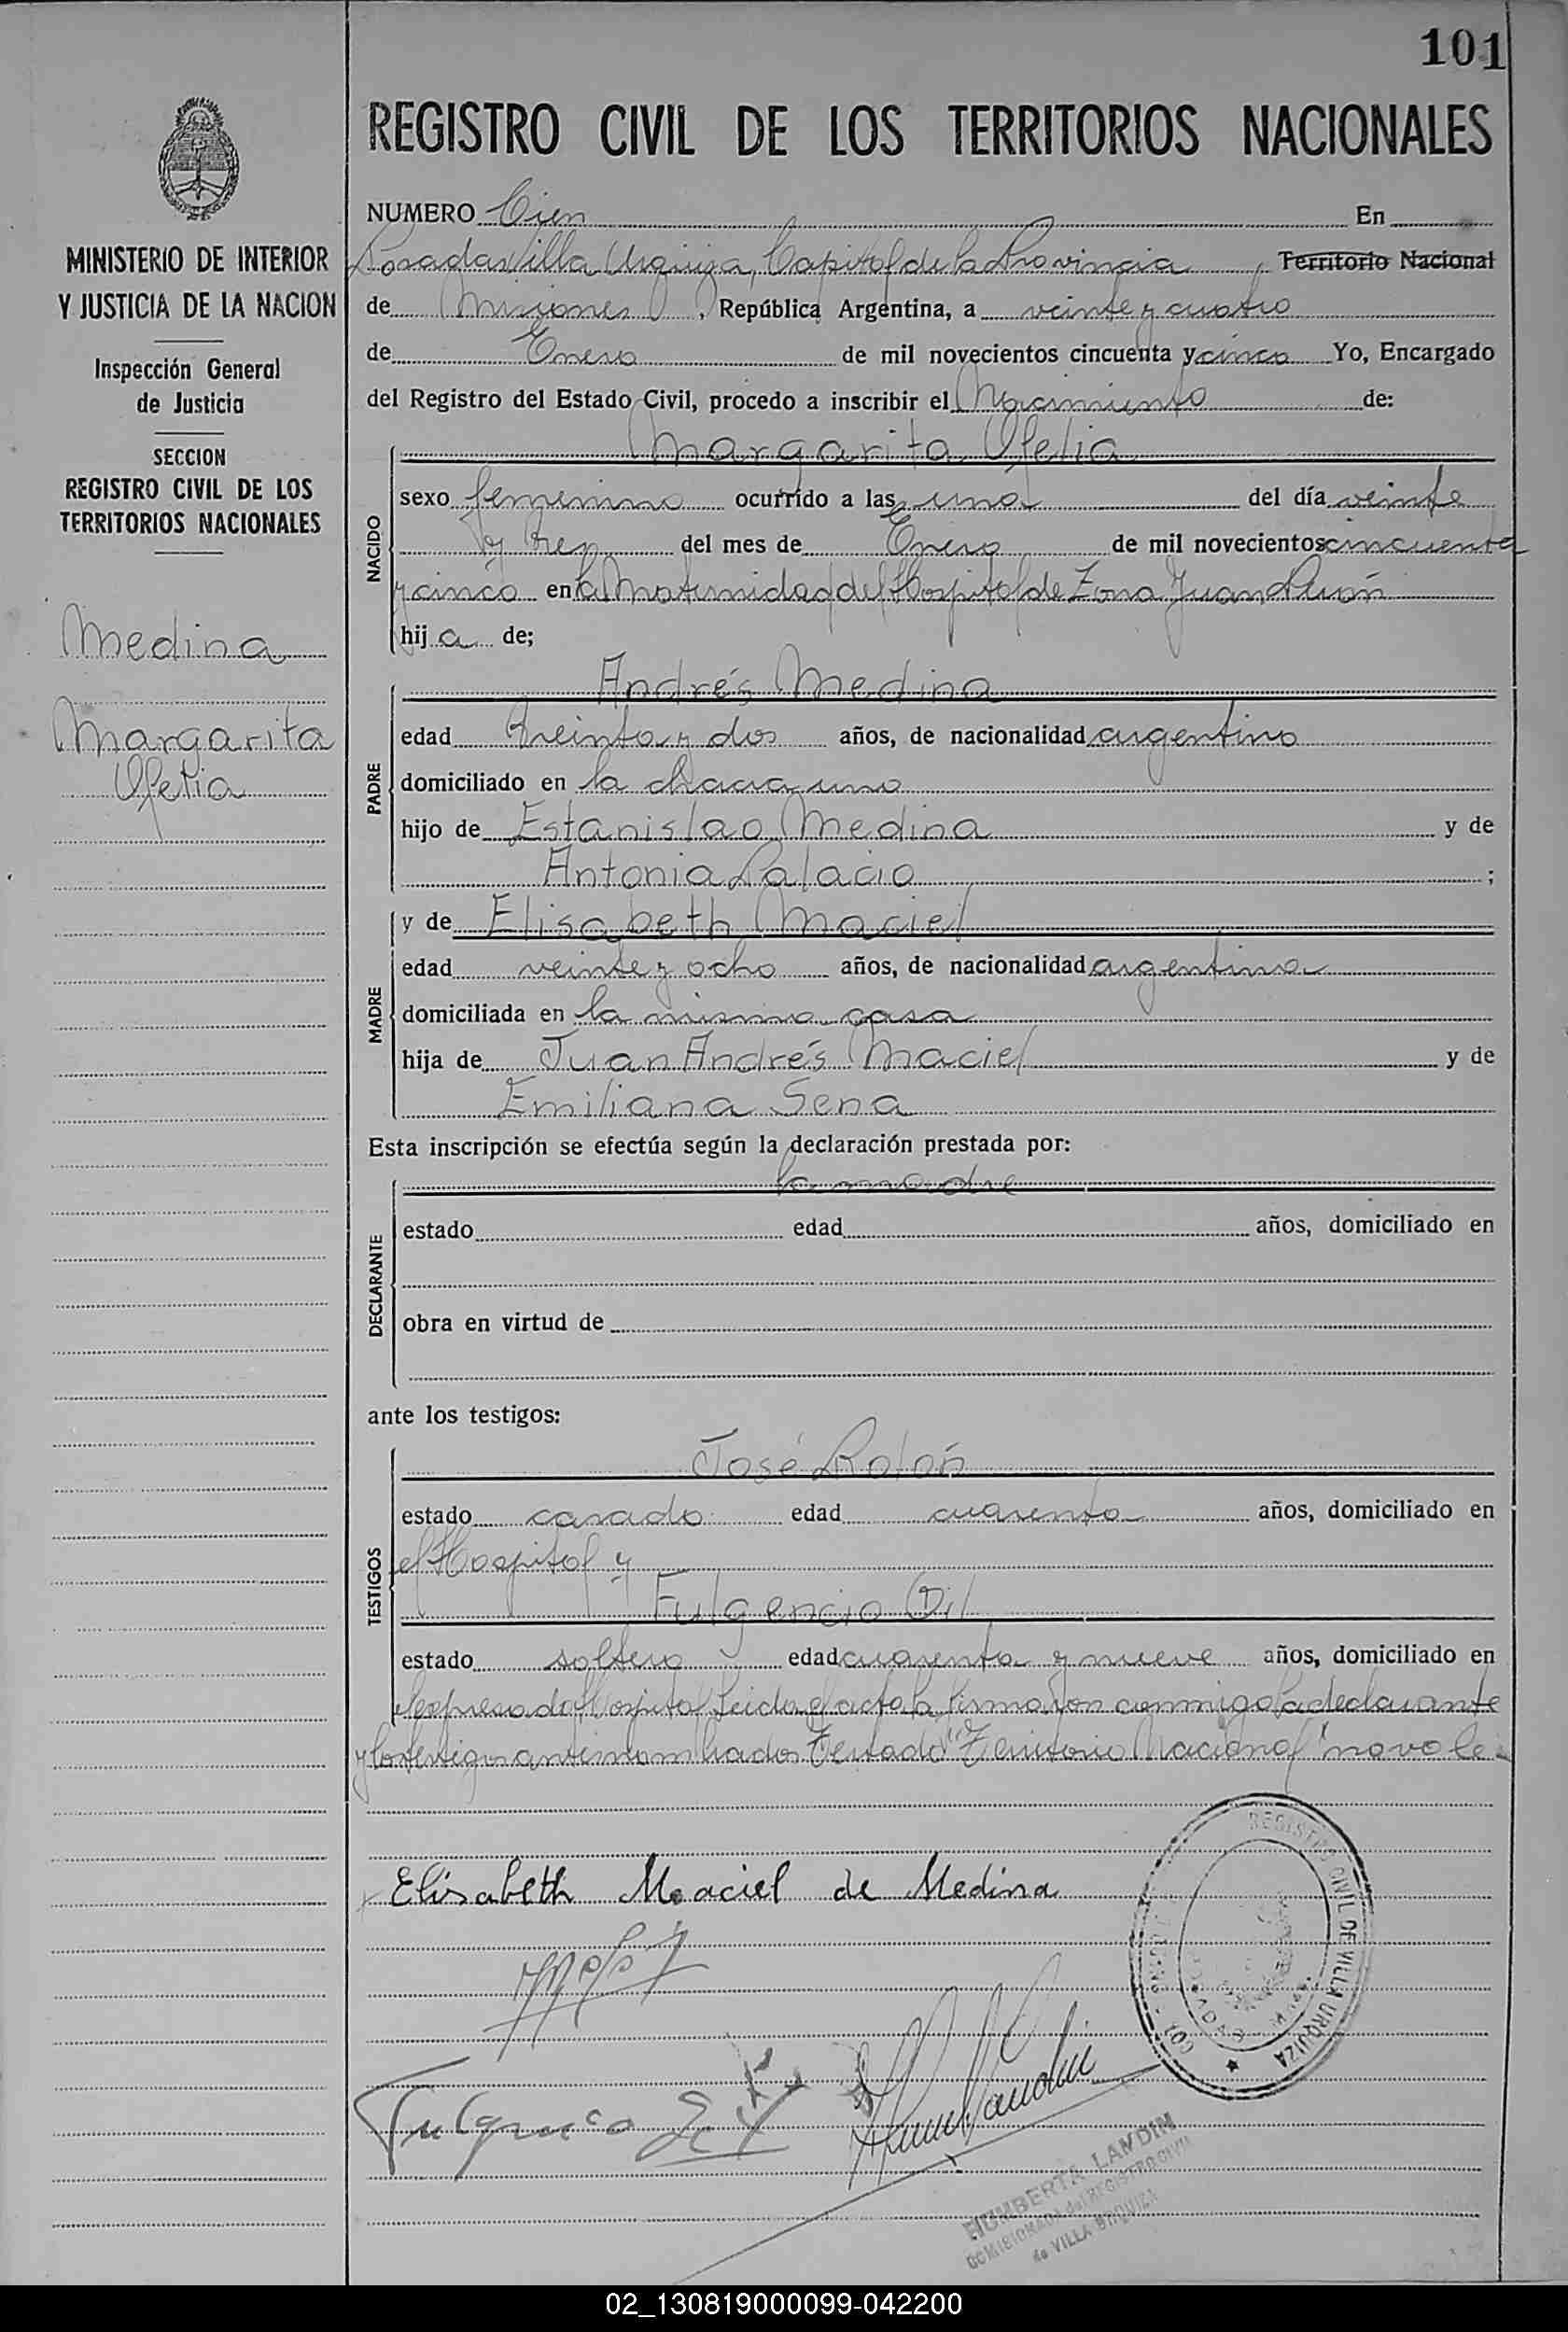 101
REGISTRO CIVIL DE LOS TERRITORIOS NACIONALES
MINISTERIO DE INTERIOR
Y JUSTICIA DE LA NACION
Inspección General
de Justicia
SECCION
REGISTRO CIVIL DE LOS
TERRITORIOS NACIONALES
Medina
Margarita
Ofelia
NUMERO Cien En
Posadas Villa Urquiza, Capital de la Provincia, Territorio Nacional
de Misiones, República Argentina, a veinte y cuatro
de Enero de mil novecientos cincuenta y cinco Yo, Encargado
del Registro del Estado Civil, procedo a inscribir el Nacimiento de:
NACIDO
Margarita Ofelia
sexo femenino ocurrido a las una del día veinte
y tres del mes de Enero de mil novecientos cincuenta
y cinco en la Maternidad del Hospital de Zona Juan Perón
hija de;
PADRE
Andrés Medina
edad treinta y dos años, de nacionalidad argentino
domiciliado en la chacra uno
hijo de Estanislao Medina y de
Antonia Palacio ;
MADRE
y de Elisabeth Maciel
edad veinte y ocho años, de nacionalidad argentina
domiciliada en la misma casa
hija de Juan Andrés Maciel y de
Emiliana Sena
Esta inscripción se efectúa según la declaración prestada por:
DECLARANTE
la madre
estado edad años, domiciliado en
obra en virtud de
ante los testigos:
TESTIGOS
José Rolón
estado casado edad cuarenta años, domiciliado en
el Hospital y
Fulgencio Gil
estado soltero edad cuarenta y nueve años, domiciliado en
el expresado Hospital Leida el acta la firmaron conmigo la declarante
y los testigos antes nombrados Testado "Territorio Nacional" no vale
Elisabeth Maciel de Medina
REGISTRO CIVIL DE VILLA URQUIZA
HUMBERTA LANDIM
COMISIONADA del REGISTRO CIVIL
de VILLA URQUIZA
02_130819000099-042200